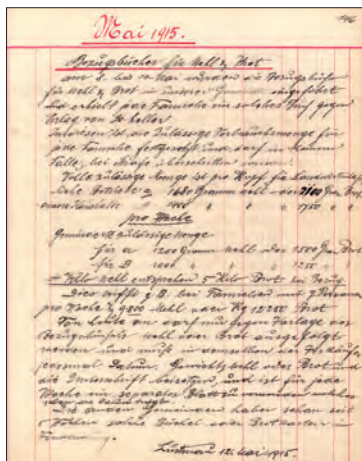 146
Mai 1915.
Bezugsbücher für Mehl & Brot
am 8. bis 10 Mai wurden die Bezugsbücher
für Mehl & Brot in unserer Gemeinde eingeführt
und erhielt jede Familie ein solches gegen
Erlag von 10 heller
ist die zulässige Verbrauchsmenge für
jede Familie festgesetzt und darf in keinem
Falle, bei Strafe, überschritten werden.
Volle zulässige Menge ist pro Kopf für
1680 Gramm Mehl oder 2100 Gram Brot
" 1400 " " " 1750 "
pro Woche
Gemeinde zulässige Menge
für A 1200 Gramm Mehl oder 1500 Gram Brot
für B 1000 " " " 1250 "
Kilo Mehl entsprechen 5 Kilo Brot bei Bezug.
Dies trifft z. B. bei Familien mit 7 Personen
pro Woche Kg 9800 Mehl oder Kg 12250 Brot
Von heute an darf nur gegen Vorlage des
Bezugsbüchels Mehl oder Brot ausgefolgt
werden und muss in demselben der Verkäufer
jeesmal Datum, Gewicht, Mehl oder Brot und
die Unterschrift beisetzen, und ist für jede
Woche ein separates Blatt zu verwenden welches
Die andern Gemeinden haben schon seit
solche Büchel oder Brotkarten in
Lustenau 12. Mai 1915.